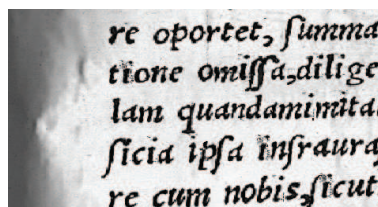 re oportet, ſumma
tione omiſſa,dilige
lam quandamimita
ſicia ipſa inſraura
re cum nobis,ſicut